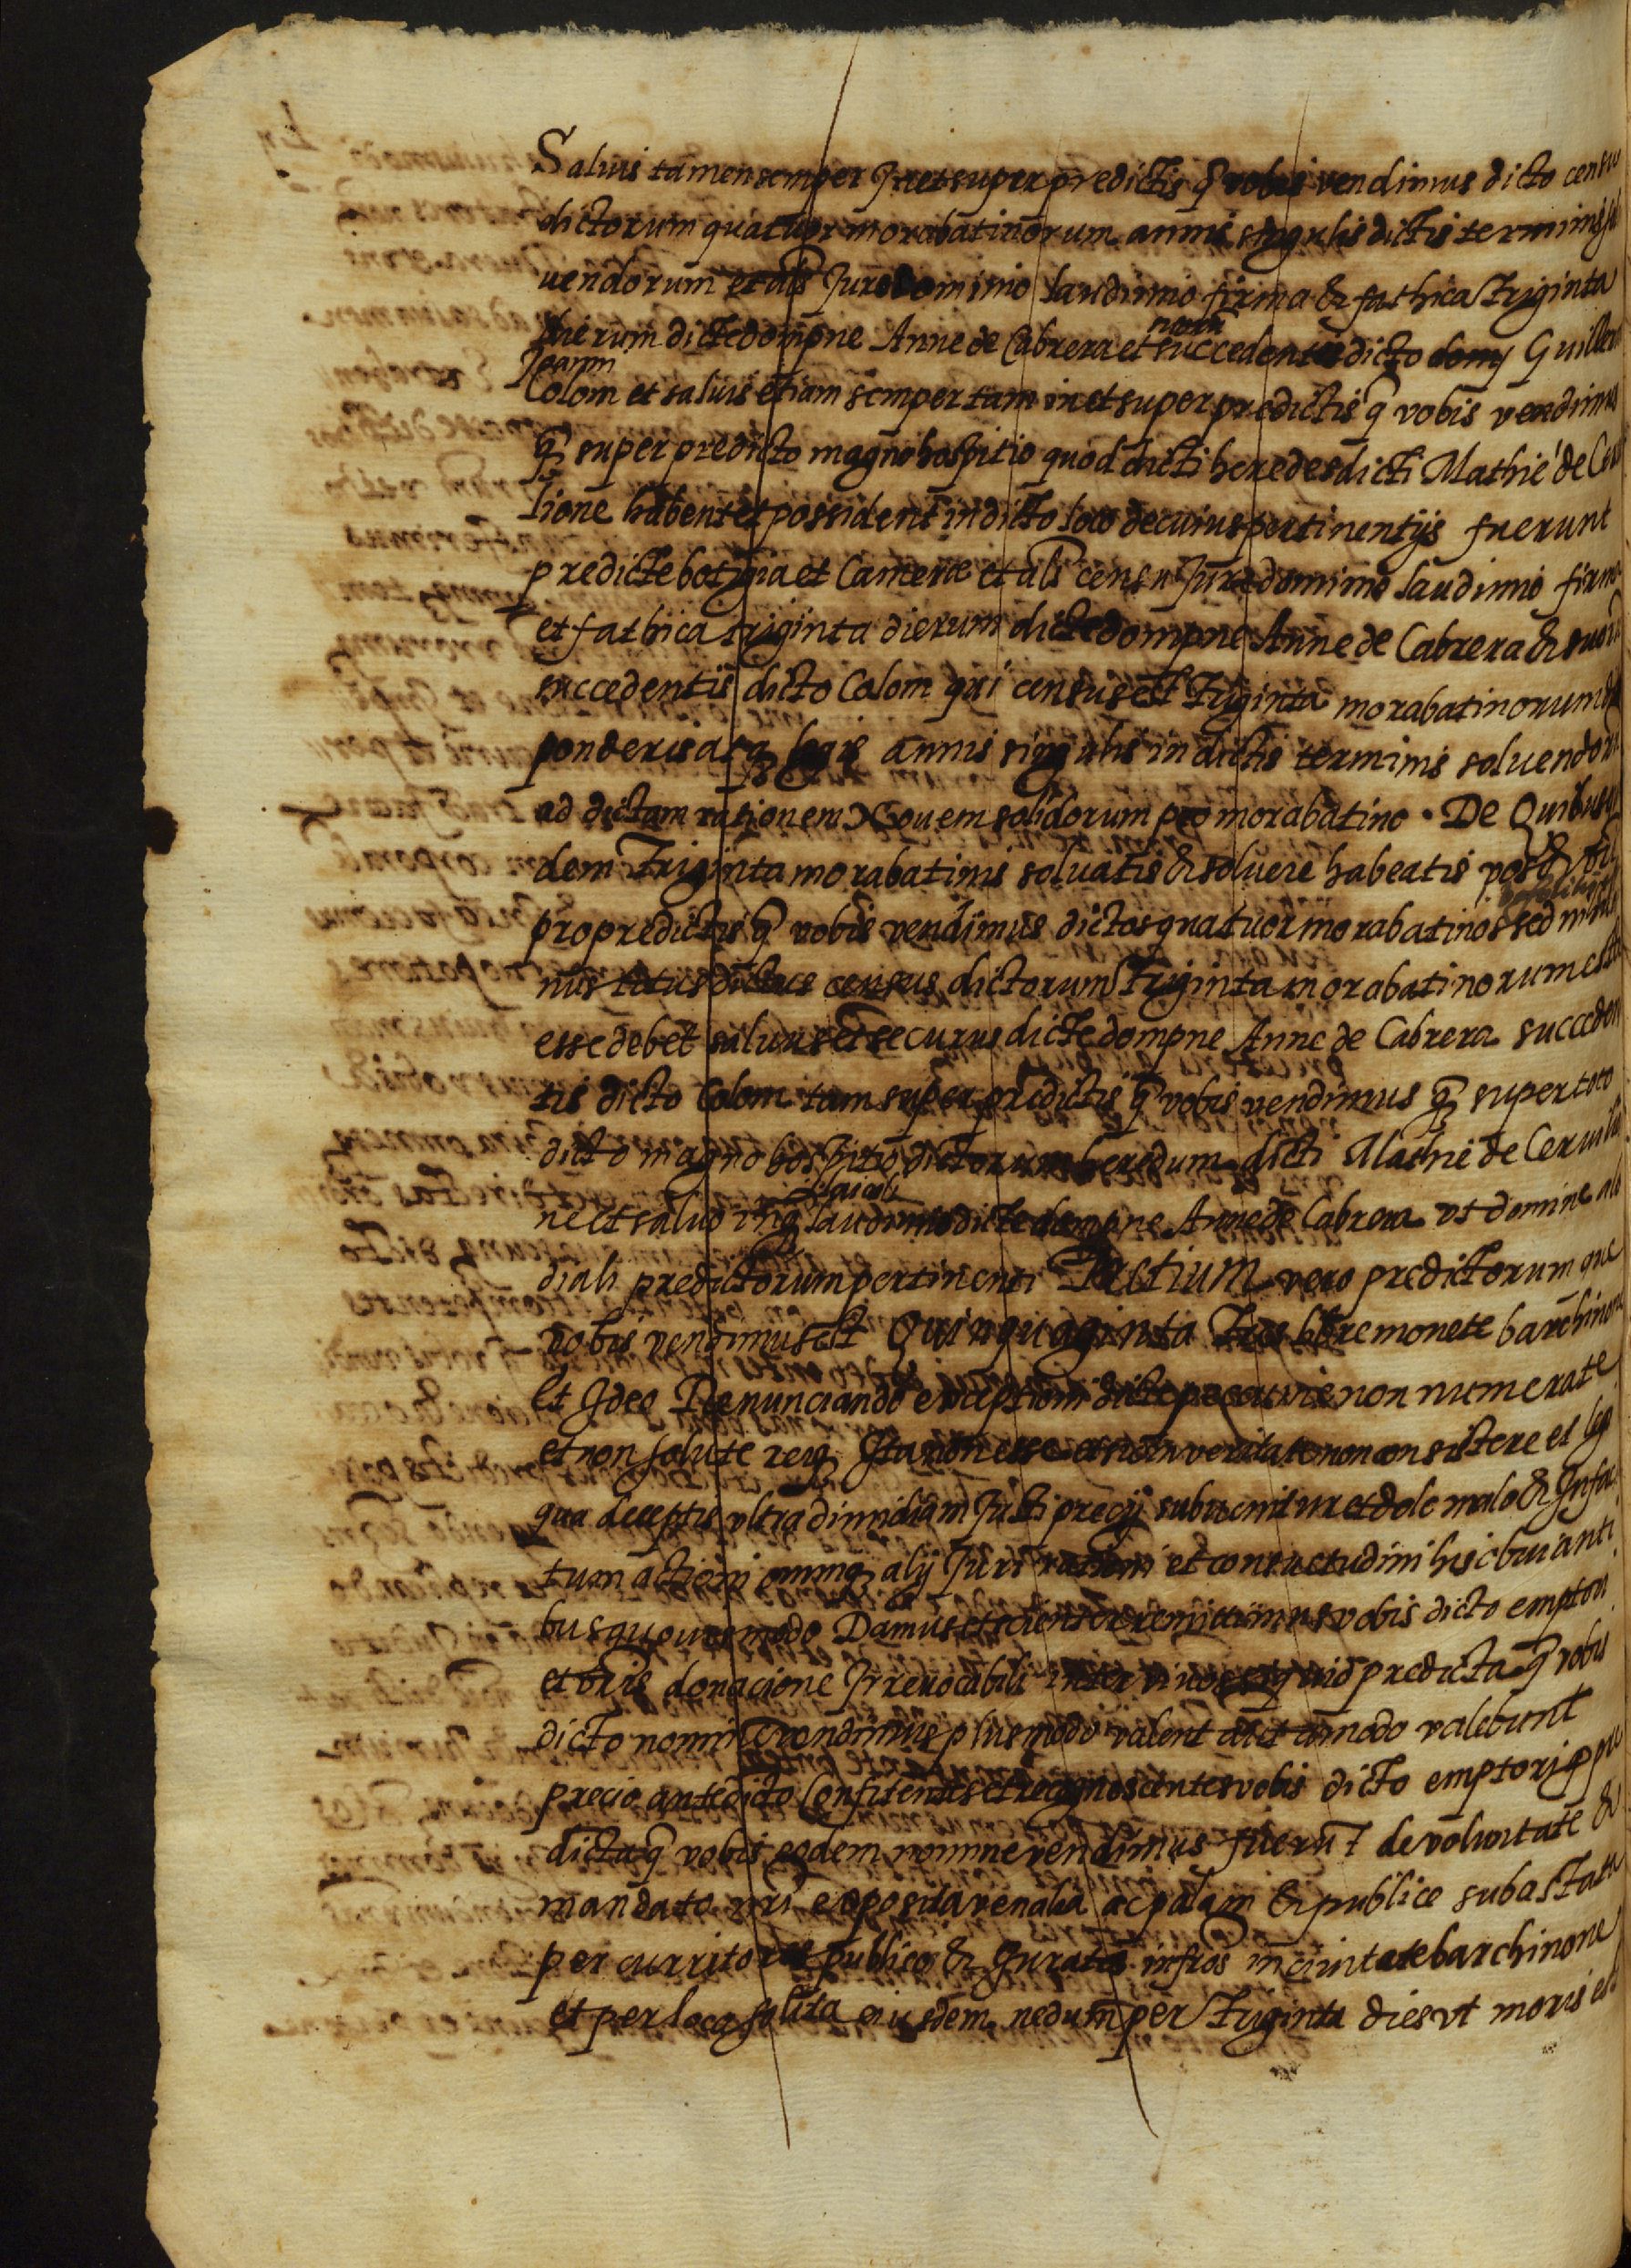 Saluis tamen semper In et super predictis q̃ vobis vendimus dicto censu
dictorum quatuor morabatinorum annis singulis dictis terminis sol
uendorum et alis Jure dominio laudimio firma & fathica Triginta
dierum dicte dompne Anne de Cabrera et succedentis dicto domӯ Guillem
Joanni
Colom et saluis etiam semper tam in et super predictis q̃ vobis vendimus
q̃ super predicto magno hospitio quod dicti heredes dicti Mathie de Cerui
lione habent et possident in dicto loco de cuius pertinentijs fuerunt
predicte botigia et Camere et alis censu Jure dominio laudimio firma
et fathica triginta dierum dicte dompne Anne de Cabrera & suorum
succedentis dicto Colom qui census est Triginta morabatinorum
ponderis atq legis annis singulis in dictis terminis soluendorum
ad dictam rationem Nouem solidorum pro morabatino . De Quibus q
dem Triginta morabatinis soluatis & soluere habeatis vos & vri
pro predictis q̃ vobis vendimus dictos quatuor morabatinos sed
nus totus dictus census dictorum Triginta morabatinorum est et
esse debet saluus et securus dicte dompne Anne de Cabrera succeden
tis dicto Colom tam super predictis q̃ vobis vendimus q̃ super toto
dicto magno hospitio dictorum heredum dicti Mathie de Ceruilio
ne et saluo Inq laudimio dicte dompne Anne de Cabrera vt domine alo
diali predictorum pertinenti Pretium vero predictorum que
vobis vendimus est Quinquaginta Tres libre monete barchinone
Et Ideo Renunciando exceptioni dicte peccunie non numerate
et non solute reiq Ita non esse et sic in veritate non consistere et legi
qua deceptis vltra dimidiam Justi precij subuenitur et dolo malo & Infac
tum actioni omniq alij Juri rationi et consuetudini his obuianti
bus quouismodo Damus et scienter remittimus vobis dicto emptori
et vris donacione Irreuocabili inter viuos siquid predicta q̃ vobis
dicto nomine vendimus plus modo valent aut amodo valebunt
precio antedicto Confitentes et recognoscentes vobis dicto emptori q pre
dicta q̃ vobis eodem nomine vendimus fuerūt de voluntate &
mandato nri exposita venalia ac palam & publice subastata
per curritores publicos & Juratos infros in ciuitate barchinone
et per loca solita eiusdem nedum per Triginta dies vt moris est